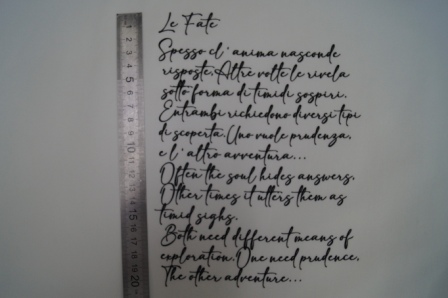 Le Fate
Spesso el'anima nasconde
risposte. Altre volte le rivela
sotto forma di timidi sospiri.
Entrambi richiedono diversi tipi
di scoperta. Uno vuole prudenza,
e l'altro avventura...
Often the soul hides answers.
Other times it utters them as
timid sighs.
Both need different means of
exploration. One need prudence.
The other adventure...
1 2 3 4 5 6 7 8 9 10 11 12 13 14 15 16 17 18 19 20